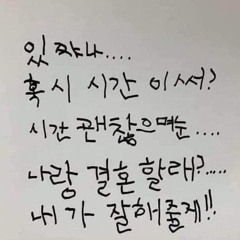 있쨔나....
혹시 시간 이써?
시간 괜찮으며눈....
나랑 결혼 할래?.....
내가 잘해줄께!!